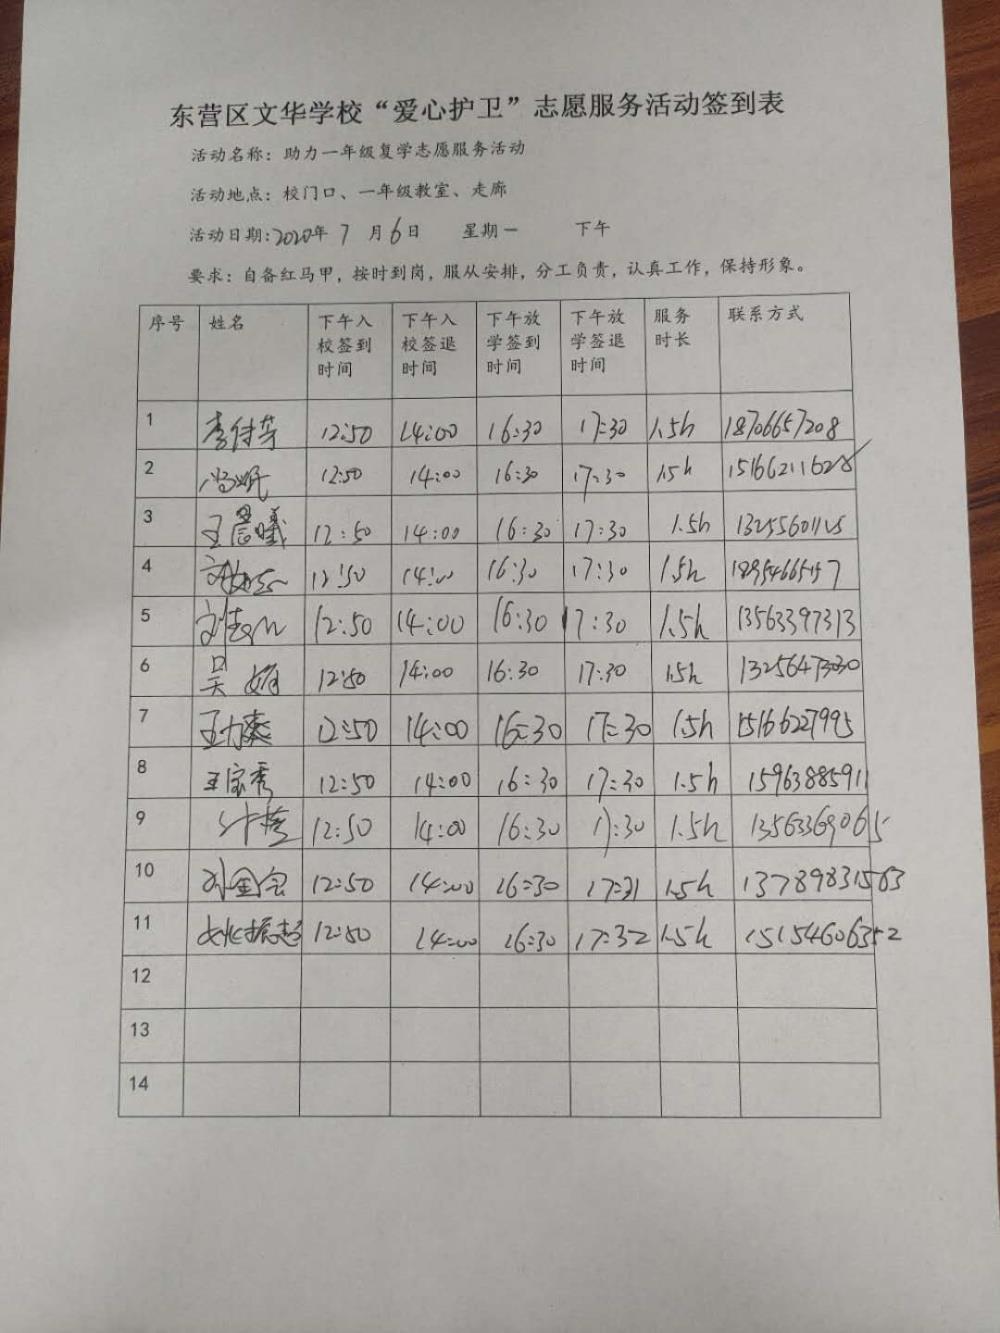 东营区文华学校“爱心护卫”志愿服务活动签到表
活动名称：助力一年级复学志愿服务活动
活动地点：校门口、一年级教室、走廊
活动日期：2020年 7 月 6 日 星期一 下午
要求：自备红马甲，按时到岗，服从安排，分工负责，认真工作，保持形象。
序号 姓名 下午入校签到时间 下午入校签退时间 下午放学签到时间 下午放学签退时间 服务时长 联系方式
1 12:50 14:00 16:30 17:30 1.5h 18706657208
2 12:50 14:00 16:30 17:30 1.5h
3 王晨曦 12:50 14:00 16:30 17:30 1.5h
4 12:50 14:00 16:30 17:30 1.5h
5 12:50 14:00 16:30 17:30 1.5h 13563397313
6 吴娟 12:50 14:00 16:30 17:30 1.5h
7 12:50 14:00 16:30 17:30 1.5h 15166227995
8 王家秀 12:50 14:00 16:30 17:30 1.5h 15963885911
9 12:50 14:00 16:30 17:30 1.5h 13563369065
10 刘金会 12:50 14:00 16:30 17:31 1.5h 13789831563
11 12:50 14:00 16:30 17:32 1.5h 15154606352
12
13
14